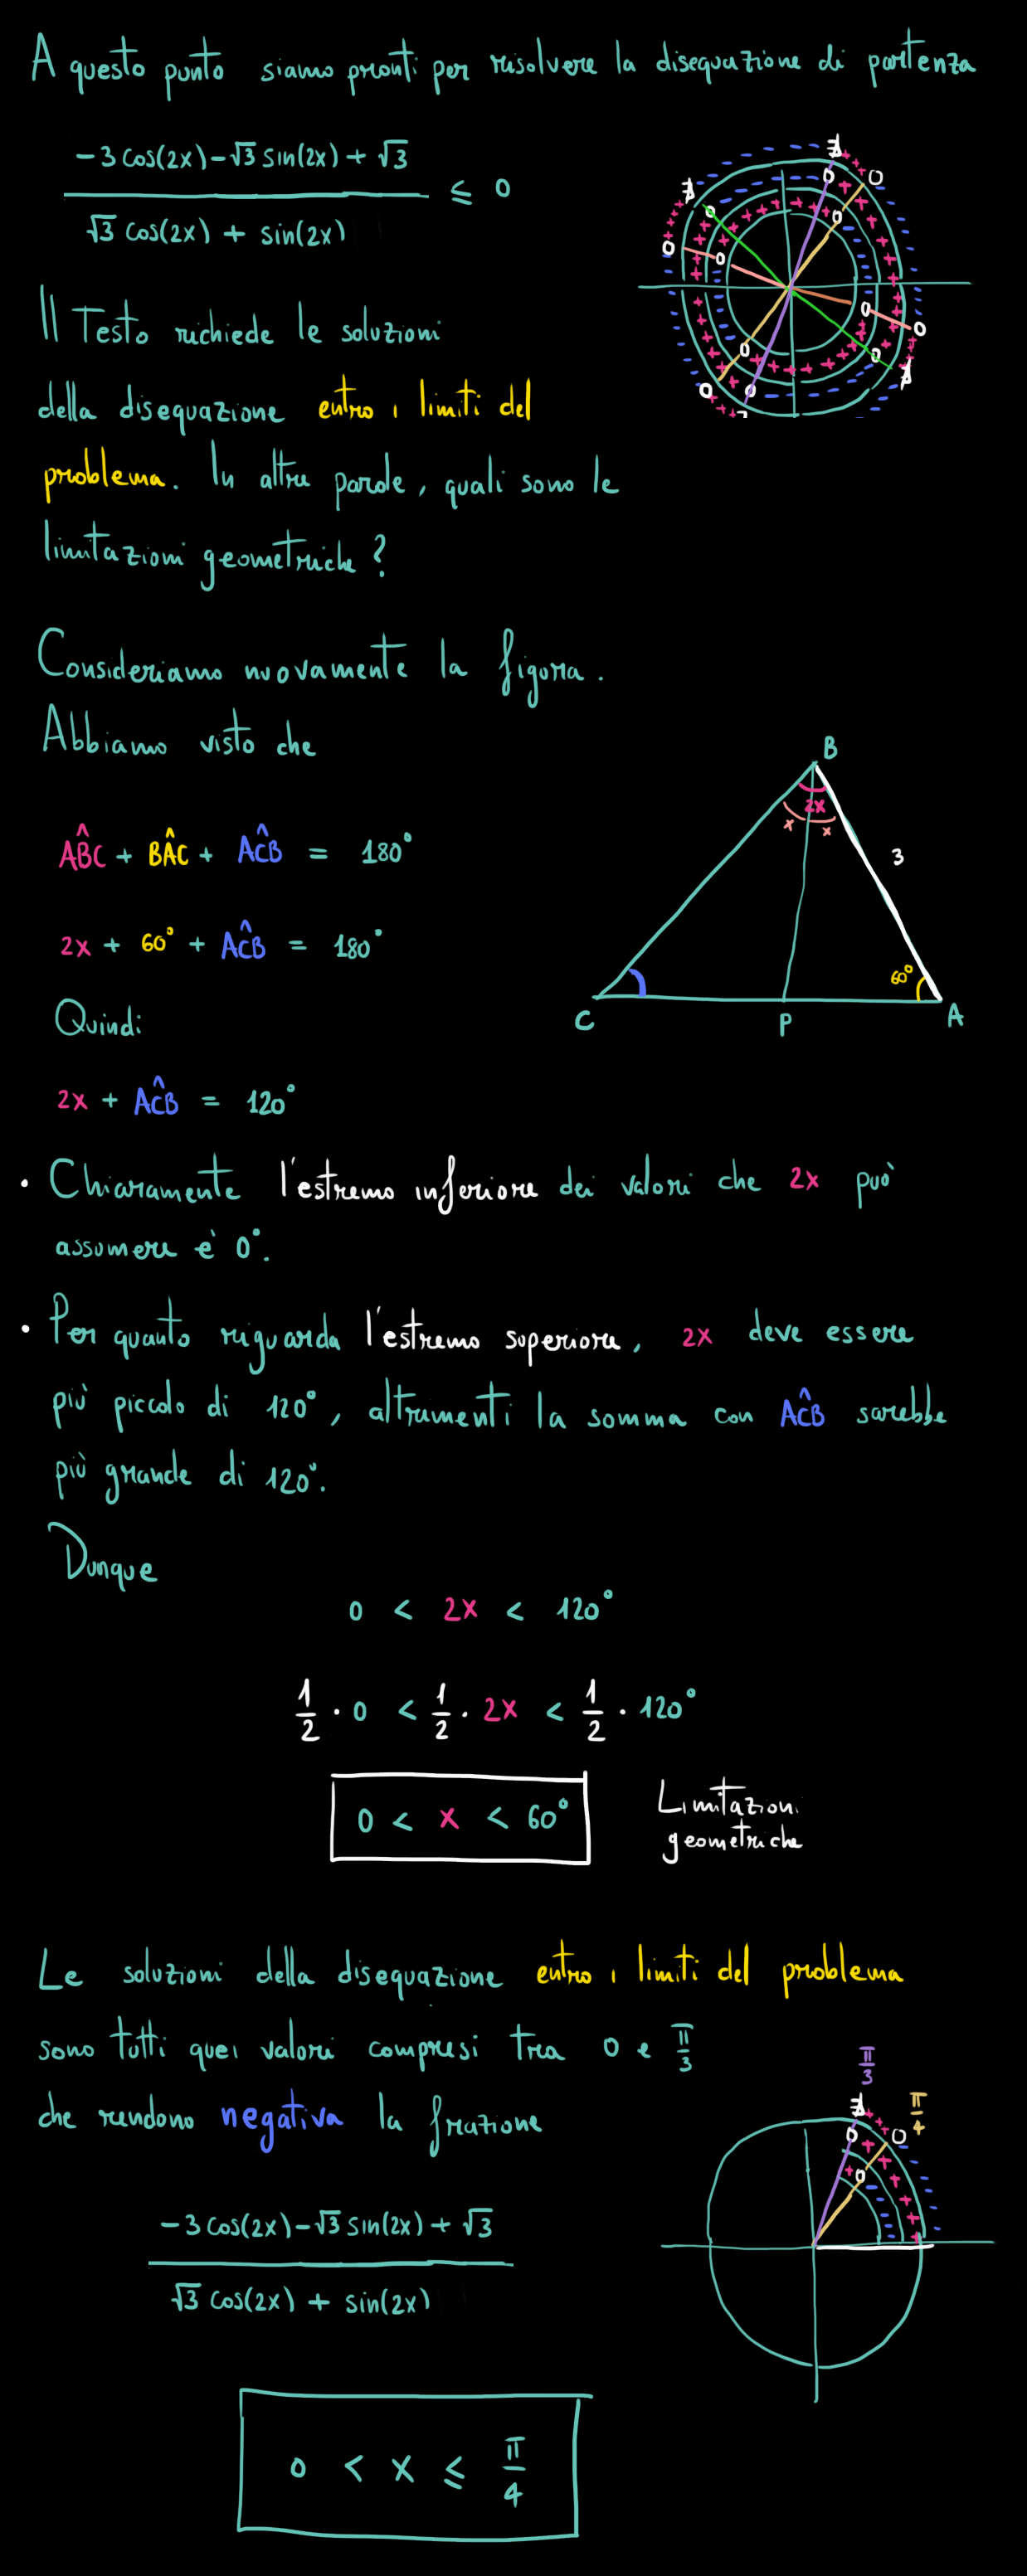 A questo punto siamo pronti per risolvere la disequazione di partenza
-3 cos(2x) - √3 sin(2x) + √3
≤ 0
√3 cos(2x) + sin(2x)
Il Testo richiede le soluzioni
della disequazione entro i limiti del
problema. In altre parole, quali sono le
limitazioni geometriche?
Consideriamo nuovamente la figura.
Abbiamo visto che
B
2x
x x
3
60°
C P A
AB̂C + BÂC + AĈB = 180°
2x + 60° + AĈB = 180°
Quindi
2x + AĈB = 120°
• Chiaramente l'estremo inferiore dei valori che 2x può
assumere è 0°.
• Per quanto riguarda l'estremo superiore, 2x deve essere
più piccolo di 120°, altrimenti la somma con AĈB sarebbe
più grande di 120°.
Dunque
0 < 2x < 120°
1/2 · 0 < 1/2 · 2x < 1/2 · 120°
0 < x < 60°
Limitazioni
geometriche
Le soluzioni della disequazione entro i limiti del problema
sono tutti quei valori compresi tra 0 e π/3
che rendono negativa la frazione
π/3
π/4
-3 cos(2x) - √3 sin(2x) + √3
√3 cos(2x) + sin(2x)
0 < x ≤ π/4